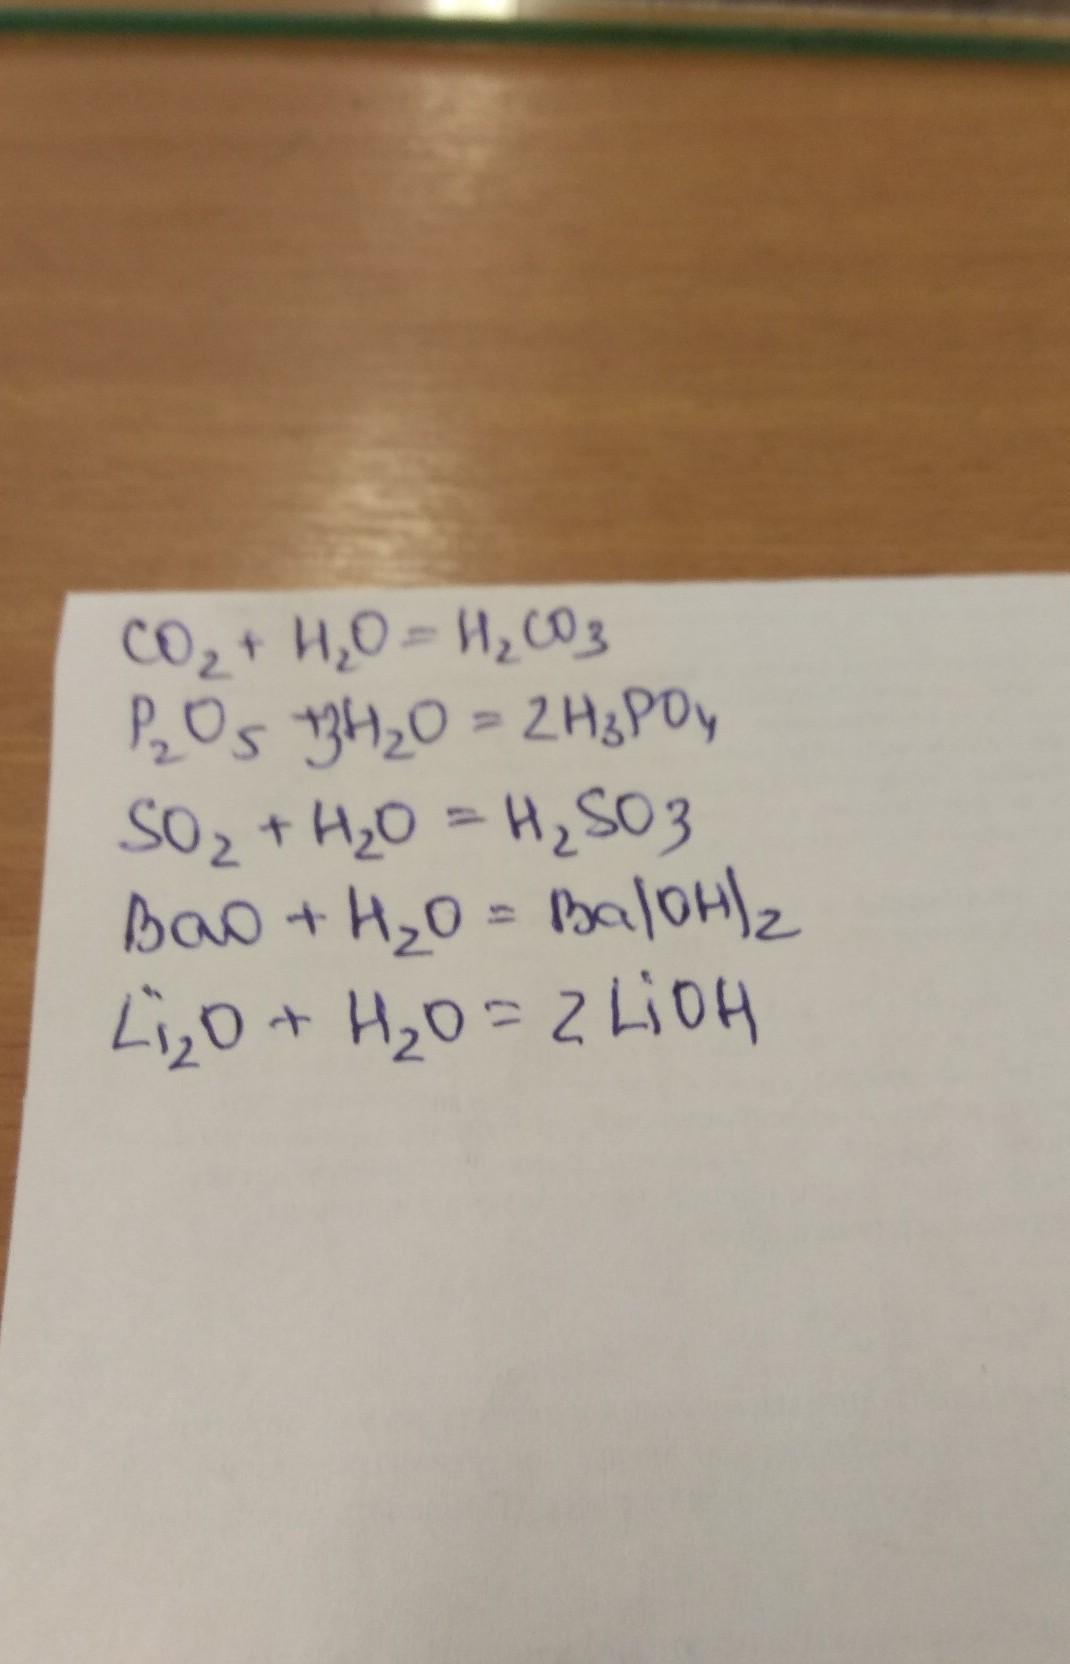 CO₂ + H₂O = H₂CO₃
P₂O₅ + 3H₂O = 2H₃PO₄
SO₂ + H₂O = H₂SO3
BaO + H₂O = Ba(OH)₂
Li₂O + H₂O = 2LiOH